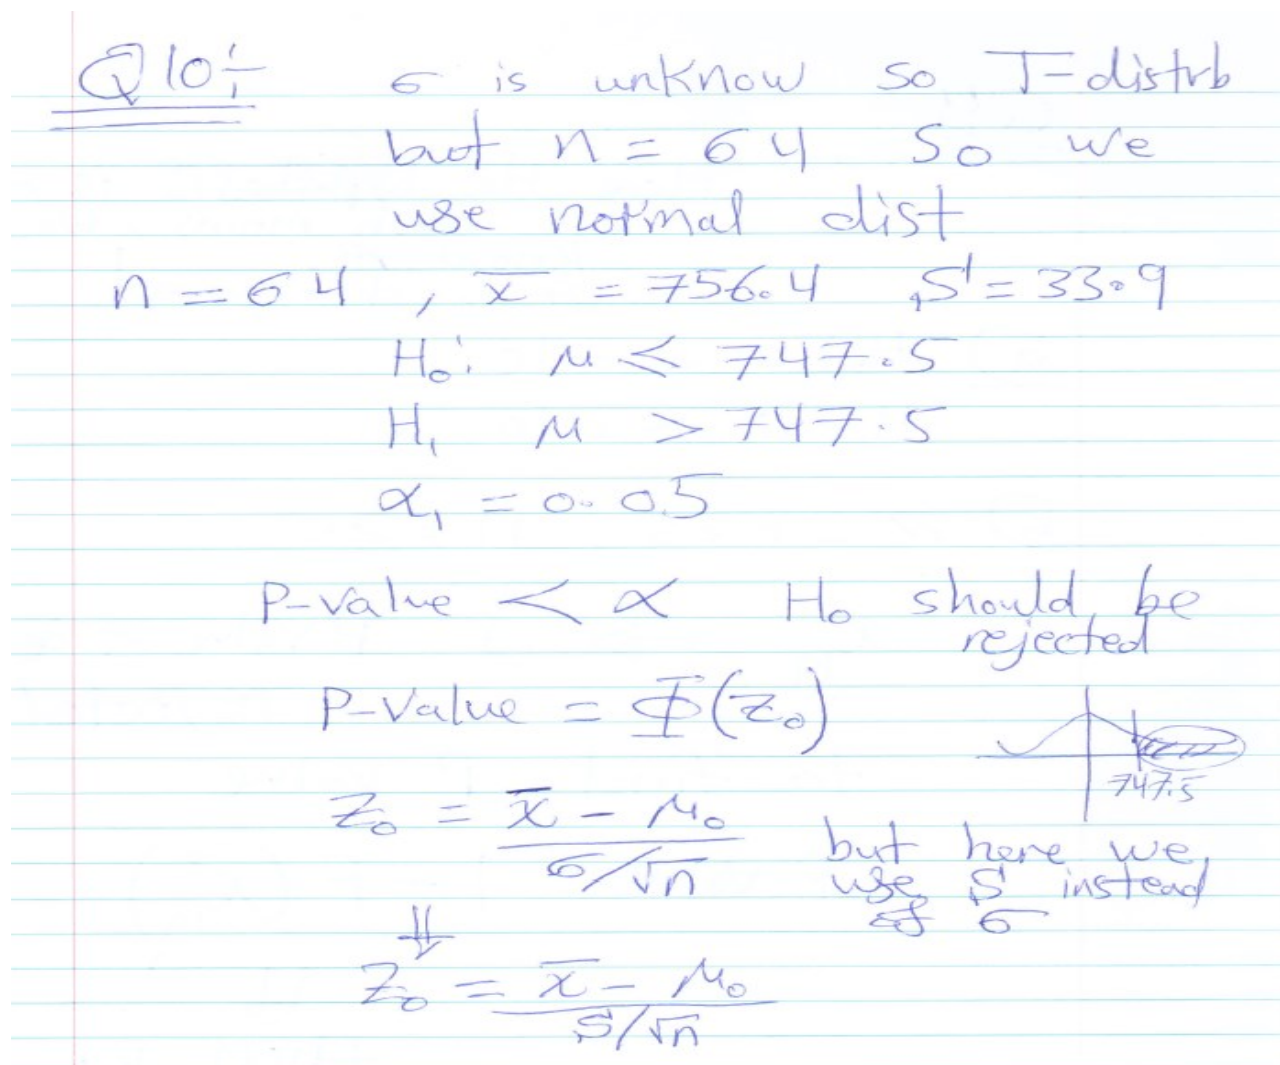 Q10:-
σ is unknow so T-distrb
but n = 64 So we
use normal dist
n = 64 , x̄ = 756.4 , S = 33.9
H₀: μ ≤ 747.5
H₁ μ > 747.5
α₁ = 0.05
P-value < α H₀ should be
rejected
P-Value = Φ(z₀)
747.5
Z₀ = (x̄ - μ₀)/(σ/√n) but here we
use S instead
of σ
⇓
Z₀ = (x̄ - μ₀)/(S/√n)